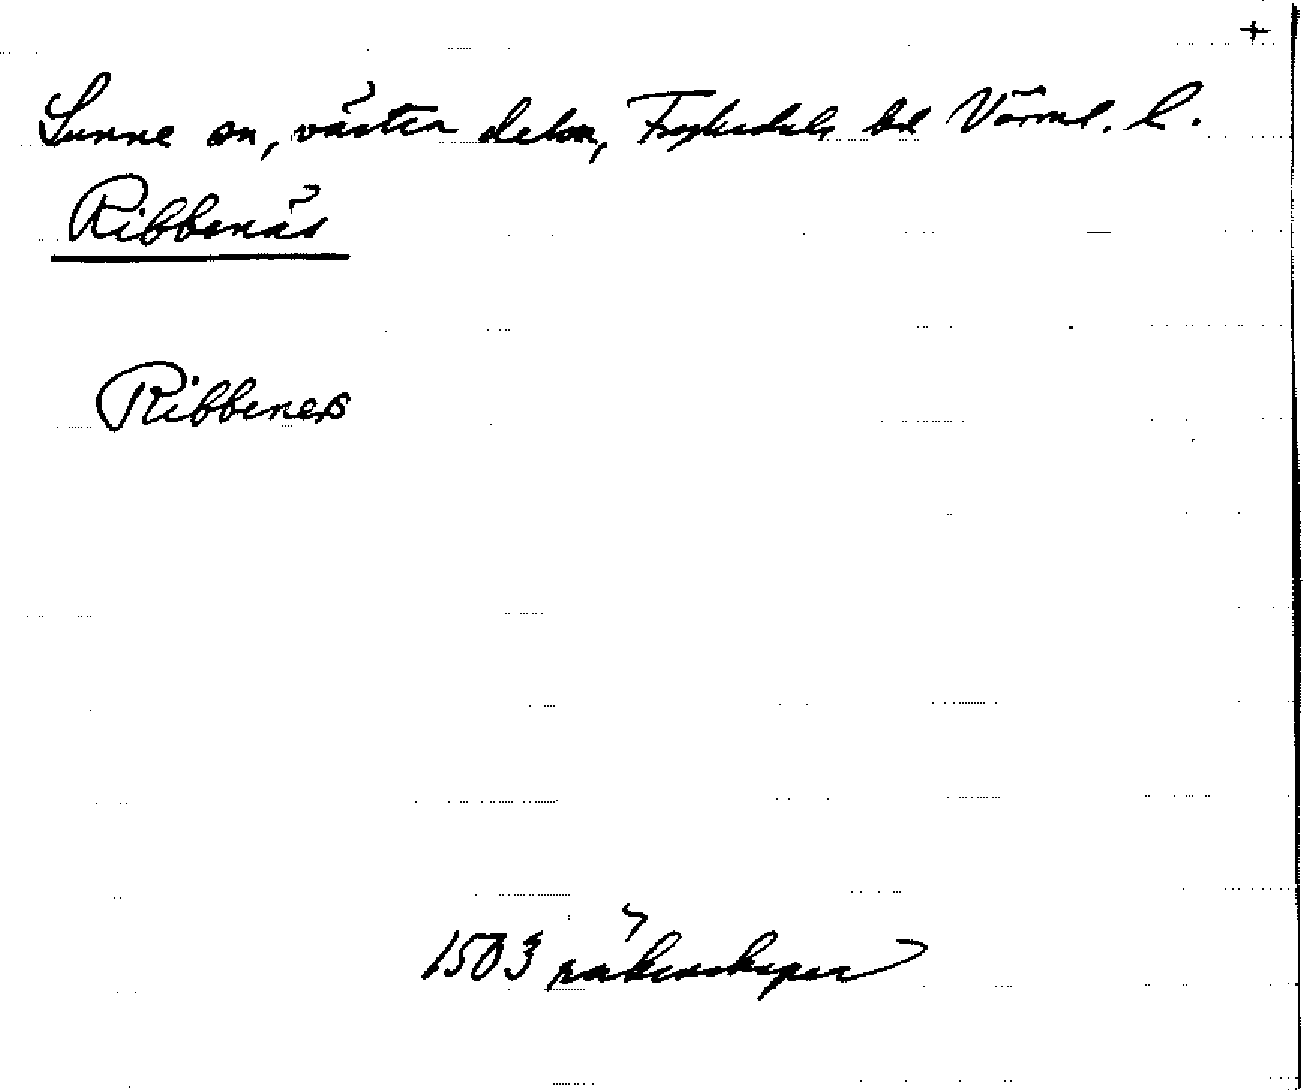 +
Sunne sn, västra delen, Fryksdals hd Värml. l.
Ribbenäs
Ribbeness
1503 räkenskaper